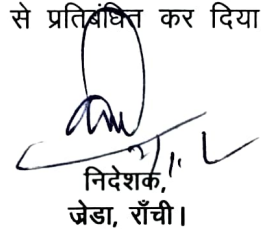 से प्रतिबंधित कर दिया
निदेशक,
ज्रेडा, राँची।